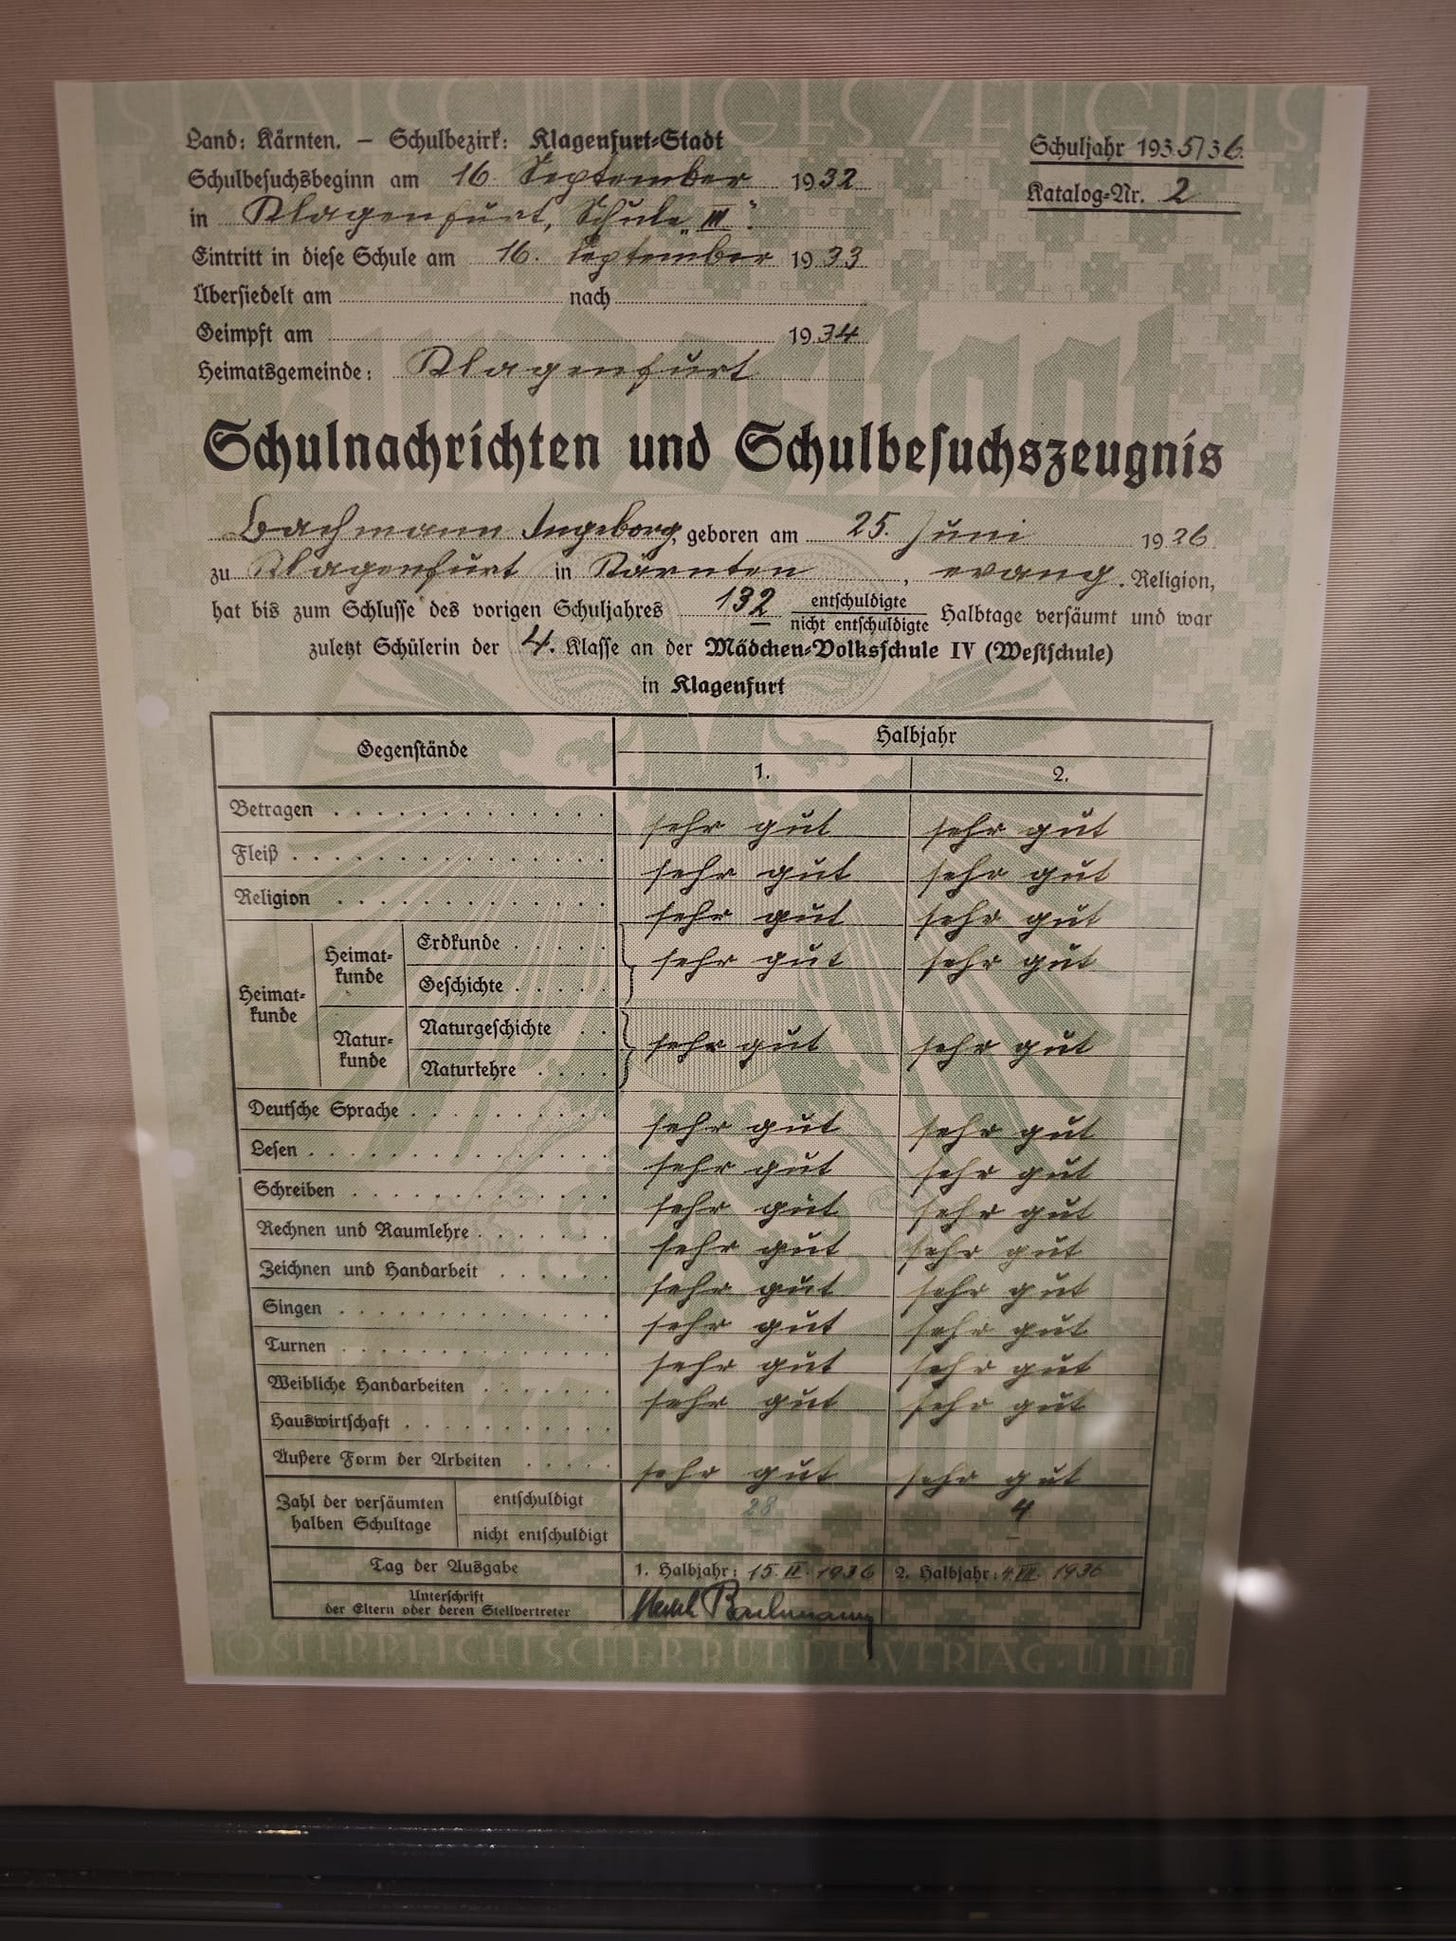 STAATSGÜLTIGES ZEUGNIS
Land: Kärnten. – Schulbezirk: Klagenfurt-Stadt
Schuljahr 1935/36.
Schulbesuchsbeginn am 16. September 1932
Katalog-Nr. 2
in Klagenfurt, Schule „III“.
Eintritt in diese Schule am 16. September 1933
Übersiedelt am nach
Geimpft am 1934
Heimatsgemeinde: Klagenfurt
Bundesstaat
Schulnachrichten und Schulbesuchszeugnis
Bachmann Ingeborg, geboren am 25. Juni 1926
zu Klagenfurt in Kärnten, evang. Religion,
hat bis zum Schlusse des vorigen Schuljahres 132 entschuldigte
nicht entschuldigte Halbtage versäumt und war
zuletzt Schülerin der 4. Klasse an der Mädchen-Volksschule IV (Westschule)
in Klagenfurt
Gegenstände Halbjahr
1. 2.
Betragen sehr gut sehr gut
Fleiß sehr gut sehr gut
Religion sehr gut sehr gut
Heimat-
kunde
Heimat-
kunde
Erdkunde sehr gut sehr gut
Geschichte
Natur-
kunde
Naturgeschichte sehr gut sehr gut
Naturlehre
Deutsche Sprache sehr gut sehr gut
Lesen sehr gut sehr gut
Schreiben sehr gut sehr gut
Rechnen und Raumlehre sehr gut sehr gut
Zeichnen und Handarbeit sehr gut sehr gut
Singen sehr gut sehr gut
Turnen sehr gut sehr gut
Weibliche Handarbeiten sehr gut sehr gut
Hauswirtschaft
Äußere Form der Arbeiten sehr gut sehr gut
Zahl der versäumten
halben Schultage
entschuldigt 28 4
nicht entschuldigt –
Tag der Ausgabe 1. Halbjahr: 15. II. 1936 2. Halbjahr: 4. VII. 1936
Unterschrift
der Eltern oder deren Stellvertreter Bachmann
ÖSTERREICHISCHER BUNDESVERLAG · WIEN